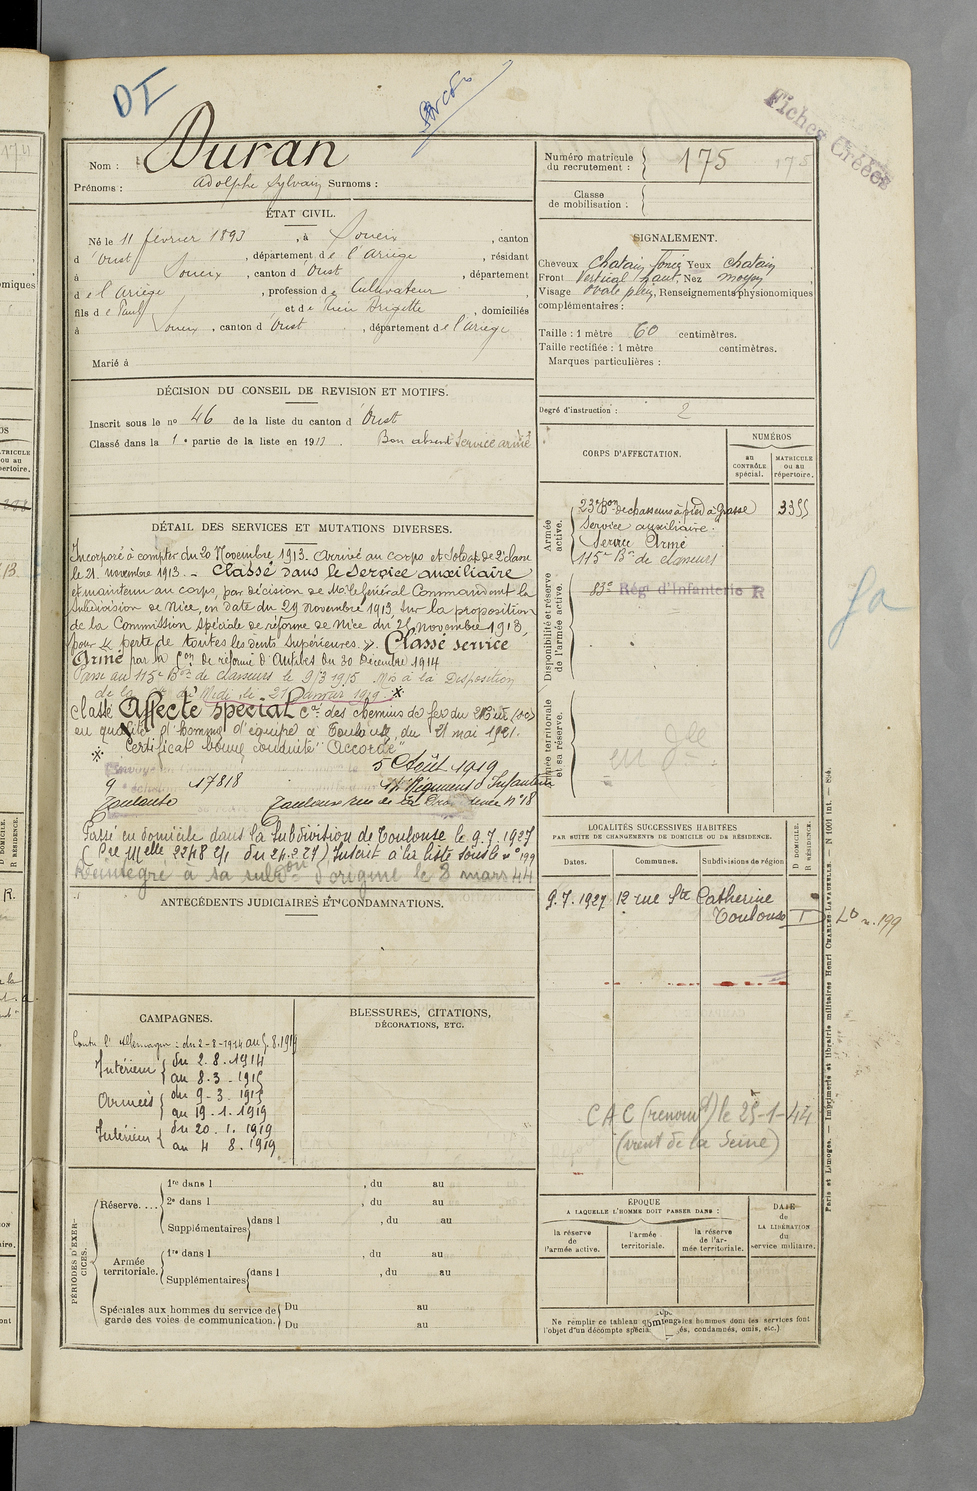 DI
Fiches Créées
Nom : Duran
Prénoms : Adolphe Sylvain Surnoms :
Numéro matricule du recrutement : 175 175
Classe de mobilisation :
ÉTAT CIVIL.
Né le 11 février 1893, à Soueix, canton
d'Oust, département de l'Ariège, résidant
à Soueix, canton d'Oust, département
de l'Ariège, profession de Cultivateur
fils de Paul et de Brigette, domiciliés
à Soueix, canton d'Oust, département de l'ariège
Marié à
SIGNALEMENT.
Cheveux chatain foncé Yeux chatain
Front Vertical haut, Nez moyen
Visage ovale plein, Renseignements physionomiques
complémentaires :
Taille : 1 mètre 60 centimètres.
Taille rectifiée : 1 mètre centimètres.
Marques particulières :
Degré d'instruction : 2
DÉCISION DU CONSEIL DE REVISION ET MOTIFS.
Inscrit sous le no 46 de la liste du canton d'Oust
Classé dans la 1e partie de la liste en 1913. Bon absent Service armé
DÉTAIL DES SERVICES ET MUTATIONS DIVERSES.
Incorporé à compter du 20 Novembre 1913. Arrivé au corps et Soldat de 2e classe
le 21 novembre 1913. - Classé dans le Service auxiliaire
et maintenu au corps, par décision de Mr le Général Commandant la
Subdivision de Nice, en date du 29 Novembre 1913 sur la proposition
de la Commission spéciale de réforme de Nice du 25 novembre 1913,
pour « perte de toutes les dents supérieures ». Classé service
Armé par la Con de réforme d'Antibes du 30 Décembre 1914
Passé au 115e Bon de chasseurs le 9/3 1915 Mis à la Disposition
de la Cie du Midi, le 21 Janvier 1919 *
Classé Affecté spécial Cie des chemins de fer du Midi
en qualité d'homme d'équipe à Toulouse, du 21 mai 1921.
* Certificat bonne conduite "Accordé"
5 Août 1919
9 17818 Régiment d'Infanterie
Toulouse Toulouse rue de la No 18
Passé en domicile dans la Subdivision de Toulouse le 9.7.1927
Inscrit à la liste sous le no 199
Réintégré à sa subon d'origine le 8 mars 44
ANTÉCÉDENTS JUDICIAIRES ET CONDAMNATIONS.
CAMPAGNES.
Contre l'Allemagne : du 2-8-1914 au 5.8.1919
Intérieur du 2.8.1914
au 8.3.1915
Armées du 9-3-1915
au 19.1.1919
Intérieur du 20.1.1919
au 4 8.1919
BLESSURES, CITATIONS,
DÉCORATIONS, ETC.
PÉRIODES D'EXERCICES.
Réserve....
1re dans l , du au
2e dans l , du au
Supplémentaires dans l , du au
Armée territoriale.
1re dans l , du au
Supplémentaires dans l , du au
Spéciales aux hommes du service de garde des voies de communication.
Du au
Du au
CORPS D'AFFECTATION.
NUMÉROS
au CONTRÔLE spécial.
MATRICULE ou au répertoire.
Armée active.
23e Bon de chasseurs à pied à Grasse 3355
Service auxiliaire.
Service Armé
115e Bon de chasseurs
Disponibilité et réserve de l'armée active.
83e Rég' d'Infanterie R
Armée territoriale et sa réserve.
LOCALITÉS SUCCESSIVES HABITÉES
PAR SUITE DE CHANGEMENTS DE DOMICILE OU DE RÉSIDENCE.
Dates. Communes. Subdivisions de région D DOMICILE. R RÉSIDENCE.
9.7.1927 12 rue Ste Catherine
Toulouse D
n. 199
CAC le 25-1-44
(vient de la Seine)
ÉPOQUE
A LAQUELLE L'HOMME DOIT PASSER DANS :
la réserve de l'armée active.
l'armée territoriale.
la réserve de l'armée territoriale.
DATE de LA LIBÉRATION du service militaire.
Ne remplir ce tableau que les hommes dont les services font
l'objet d'un décompte spécial és, condamnés, omis, etc.)
Paris et Limoges. — Imprimerie et librairie militaires Henri CHARLES-LAVAUZELLE.